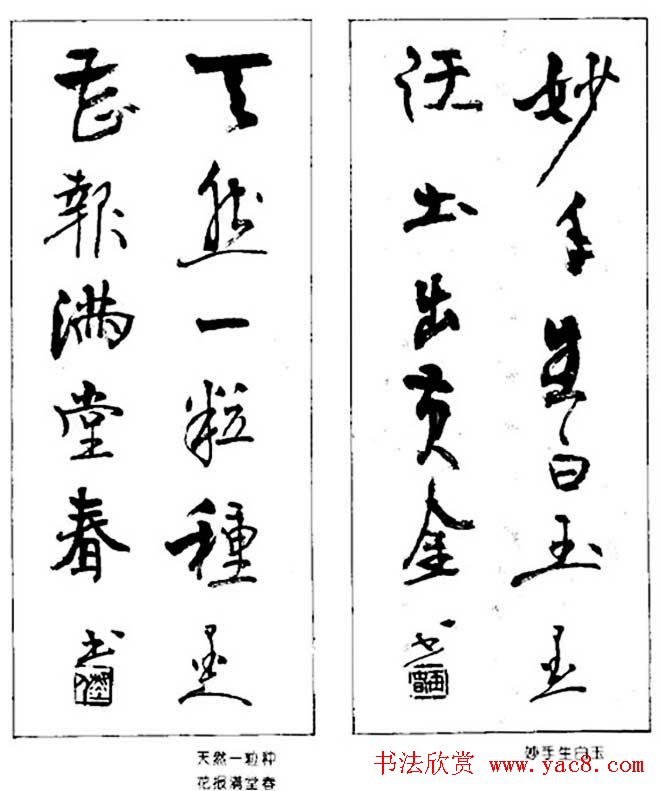 妙手生白玉
沃土出黄金 书
天然一粒種
花報满堂春 书
妙手生白玉
天然一粒种
花报满堂春
书法欣赏 www.yac8.com